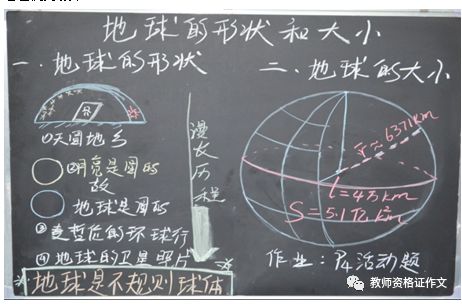 地球的形状和大小
一、地球的形状
①天圆地方
②月亮是圆的
故
地球是圆的
③麦哲伦的环球行
④地球的卫星照片
地球是不规则球体
漫长历程
二、地球的大小
r≈6371km
L=4万km
S=5.1亿km²
作业：P4活动题
教师资格证作文